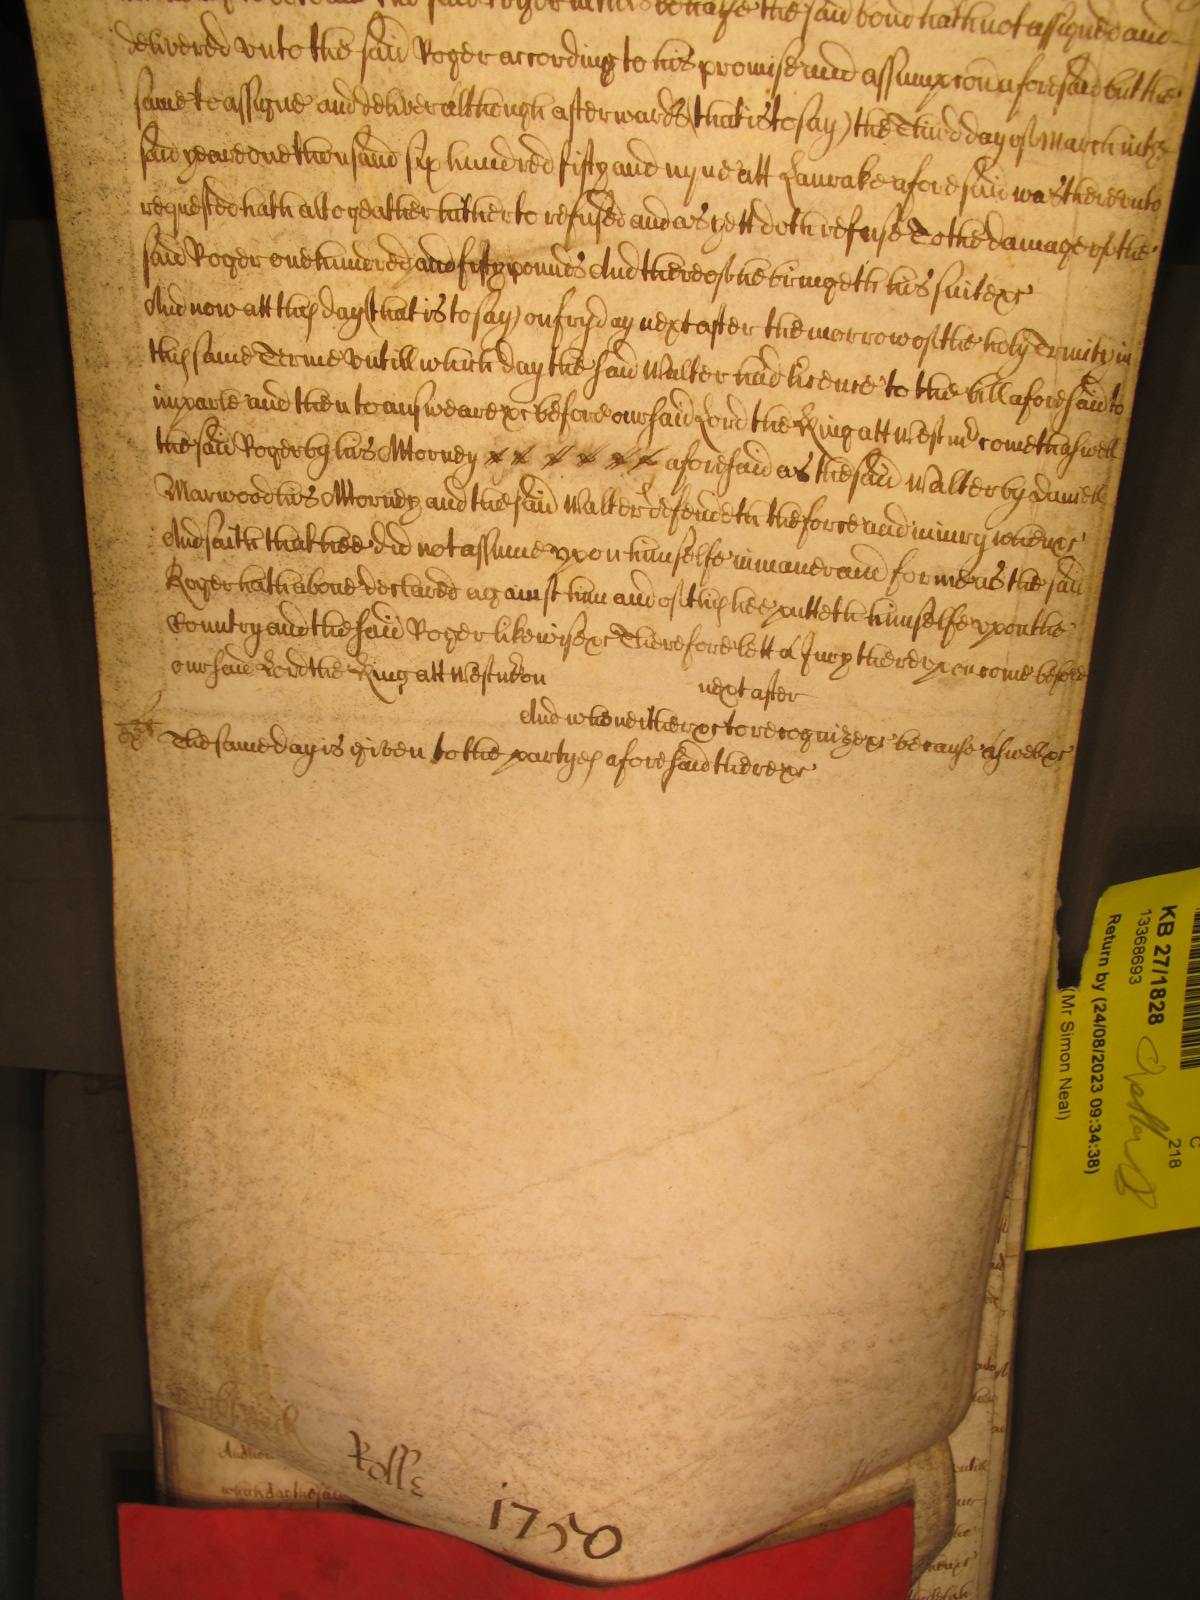 the said bond hath not assigned and
delivered unto the said Roger according to his promise and assumpcon aforesaid but the
same to assigne and deliver although afterwards (that is to say) the Third day of March in the
said yeare one thousand six hundred fifty and nyne att Lanrake aforesaid was thereunto
requested hath altogeather hitherto refused and as yett doth refuse To the damage of the
said Roger one hundred and fifty pounds And thereof he bringeth his suite &c
And now att this day (that is to say) on fryday next after the morrow of the holy Trinity in
this same Terme Untill which day the said Walter had licence to the bill aforesaid to
imparle and then to answeare &c before our said Lord the King att Westm cometh aswell
the said Roger by his Attorney aforesaid as the said Walter by Daniell
Marwood his Attorney and the said Walter defendeth the force and iniury when &c
And saith that hee did not assume upon himselfe in maner and forme as the said
Roger hath above declared against him and of this hee putteth himselfe upon the
Country and the said Roger likewise &c Therefore lett a Jury thereupon come before
our said Lord the King att Westm on next after
And who neither &c to recognize &c because aswell &c
The same day is given to the partyes aforesaid there &c
Rolle 1750
KB 27/1828
13368693
Return by (24/08/2023 09:34:38)
(Mr Simon Neal)
218
C